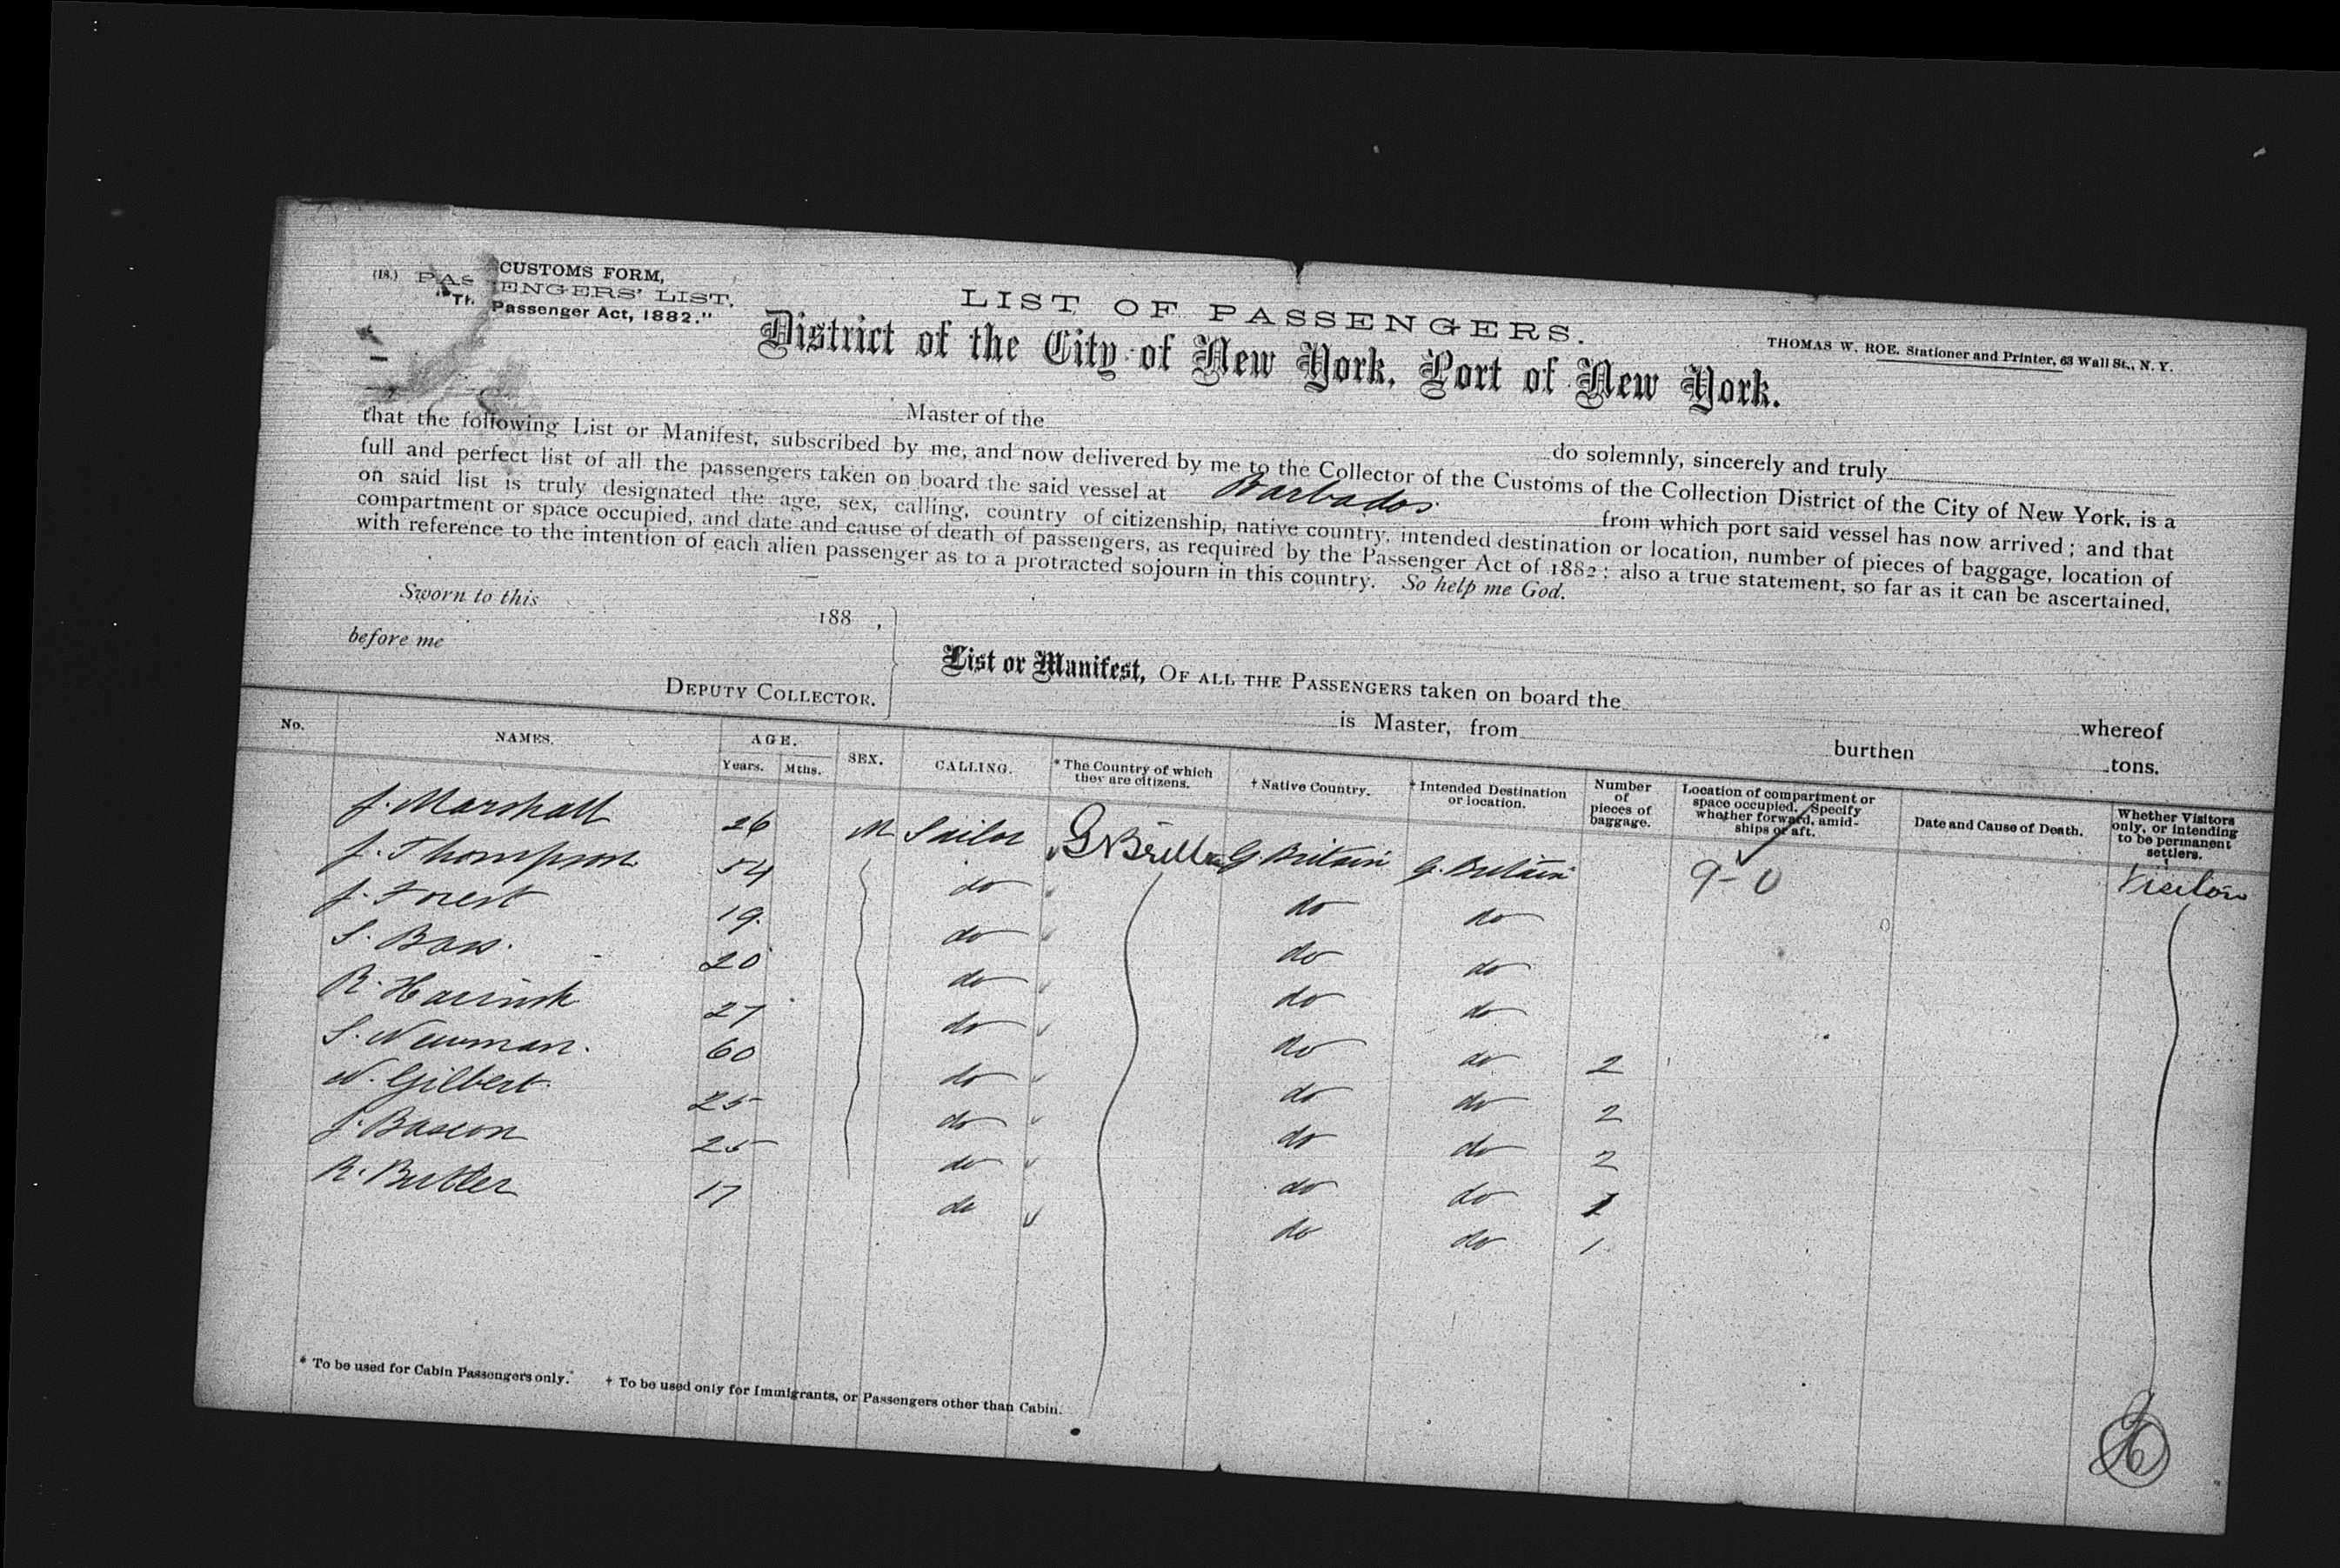 (18.) CUSTOMS FORM,
PAS ENGERS' LIST.
"Th Passenger Act, 1882."
LIST OF PASSENGERS.
District of the City of New York, Port of New York.
THOMAS W. ROE, Stationer and Printer, 63 Wall St., N. Y.
Master of the do solemnly, sincerely and truly
that the following List or Manifest, subscribed by me, and now delivered by me to the Collector of the Customs of the Collection District of the City of New York, is a
full and perfect list of all the passengers taken on board the said vessel at Barbados from which port said vessel has now arrived; and that
on said list is truly designated the age, sex, calling, country of citizenship, native country, intended destination or location, number of pieces of baggage, location of
compartment or space occupied, and date and cause of death of passengers, as required by the Passenger Act of 1882; also a true statement, so far as it can be ascertained,
with reference to the intention of each alien passenger as to a protracted sojourn in this country. So help me God.
Sworn to this 188 ,
before me
DEPUTY COLLECTOR.
List or Manifest, OF ALL THE PASSENGERS taken on board the whereof
is Master, from burthen tons.
No. NAMES. AGE. Years. Mths. SEX. CALLING. * The Country of which they are citizens. † Native Country. † Intended Destination or location. Number of pieces of baggage. Location of compartment or space occupied. Specify whether forward, amidships or aft. Date and Cause of Death. Whether Visitors only, or intending to be permanent settlers.
J. Marshall 26 M Sailor G Britain G Britain 9-0 Visitors
J. Thompson 54 do do do
J. Forest 19 do do do
S. Bass. 20 do do do
R. 27 do do do 2
S. Newman. 60 do do do 2
W. Gilbert. 25 do do do 2
J. Bascon 25 do do do 1
R. Butler 17 do do do 1
* To be used for Cabin Passengers only. † To be used only for Immigrants, or Passengers other than Cabin.